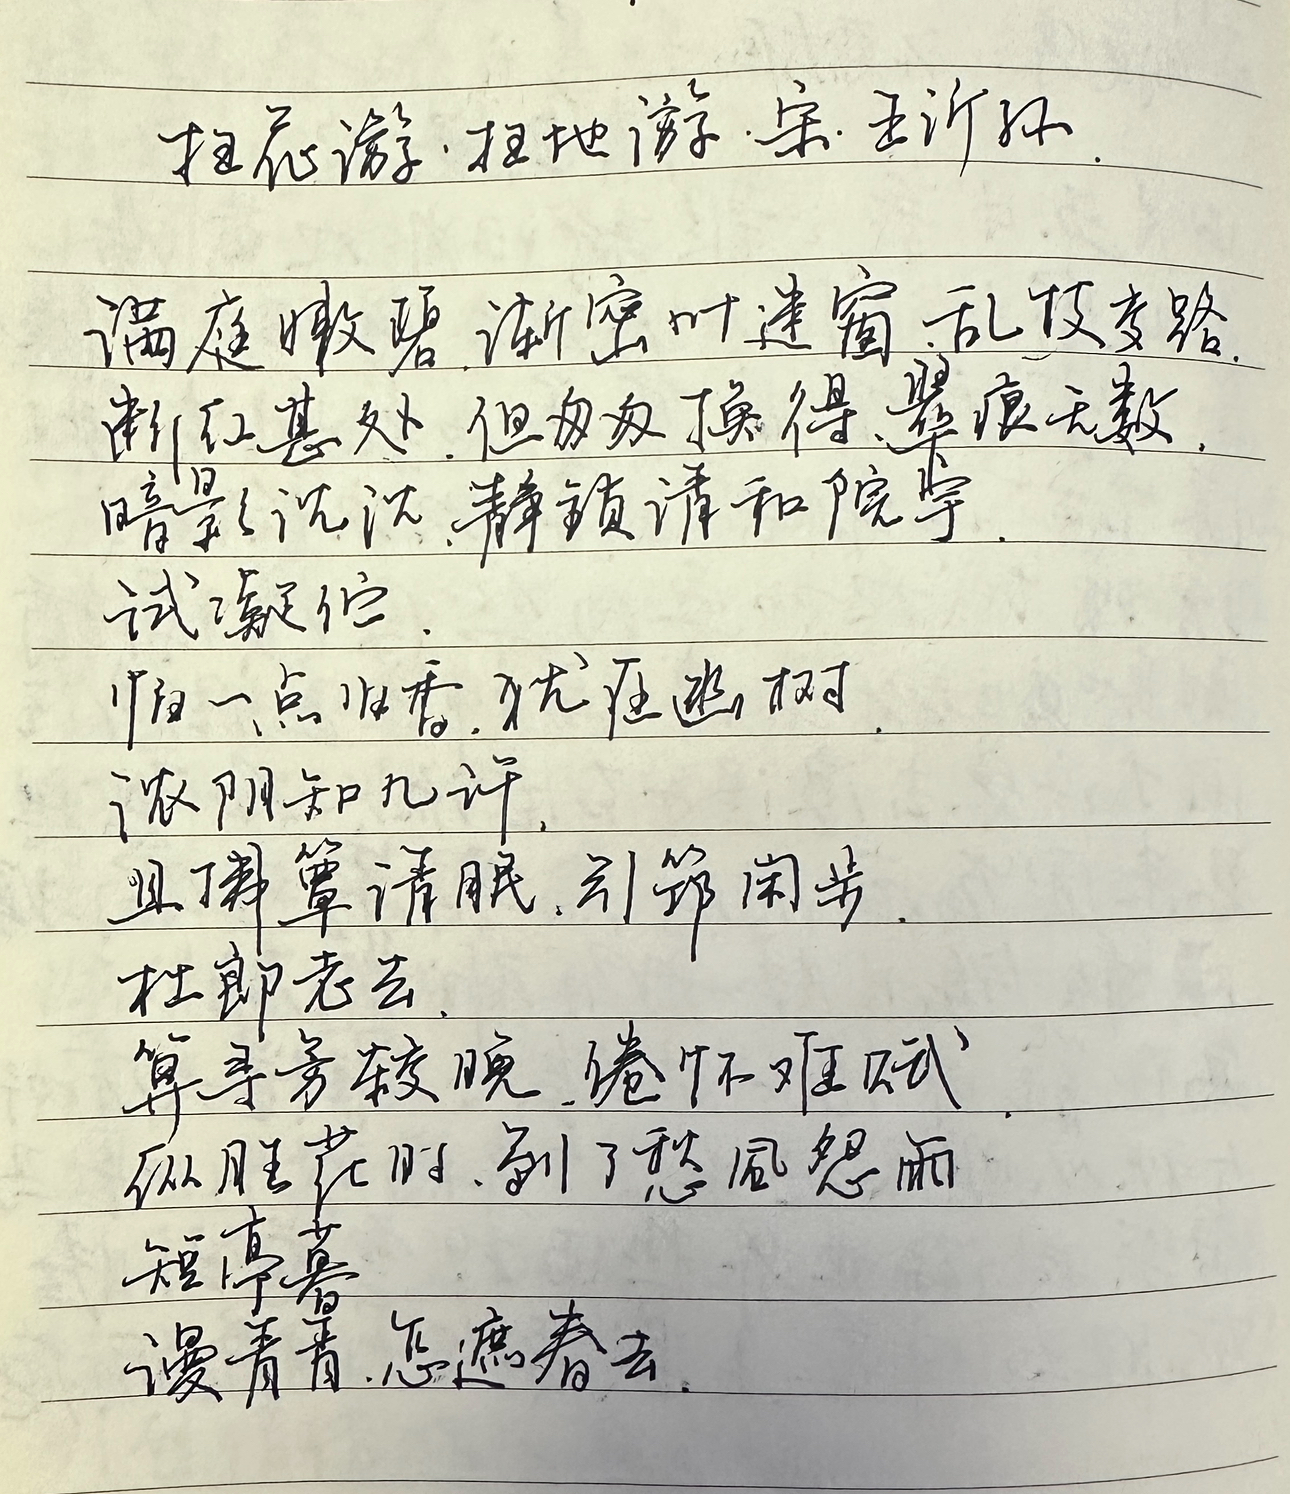 扫花游·扫地游·宋·王沂孙.
满庭嫩碧.渐密叶迷窗.乱枝交路.
断红甚处.但匆匆换得.翠痕无数.
暗影沉沉.静锁清和院宇.
试凝伫.
怕一点旧香.犹在幽树.
浓阴知几许.
且拂簟清眠.引筇闲步.
杜郎老去.
算寻芳较晚.倦怀难赋.
纵胜花时.到了愁风怨雨
短亭暮
谩青青.怎遮春去.